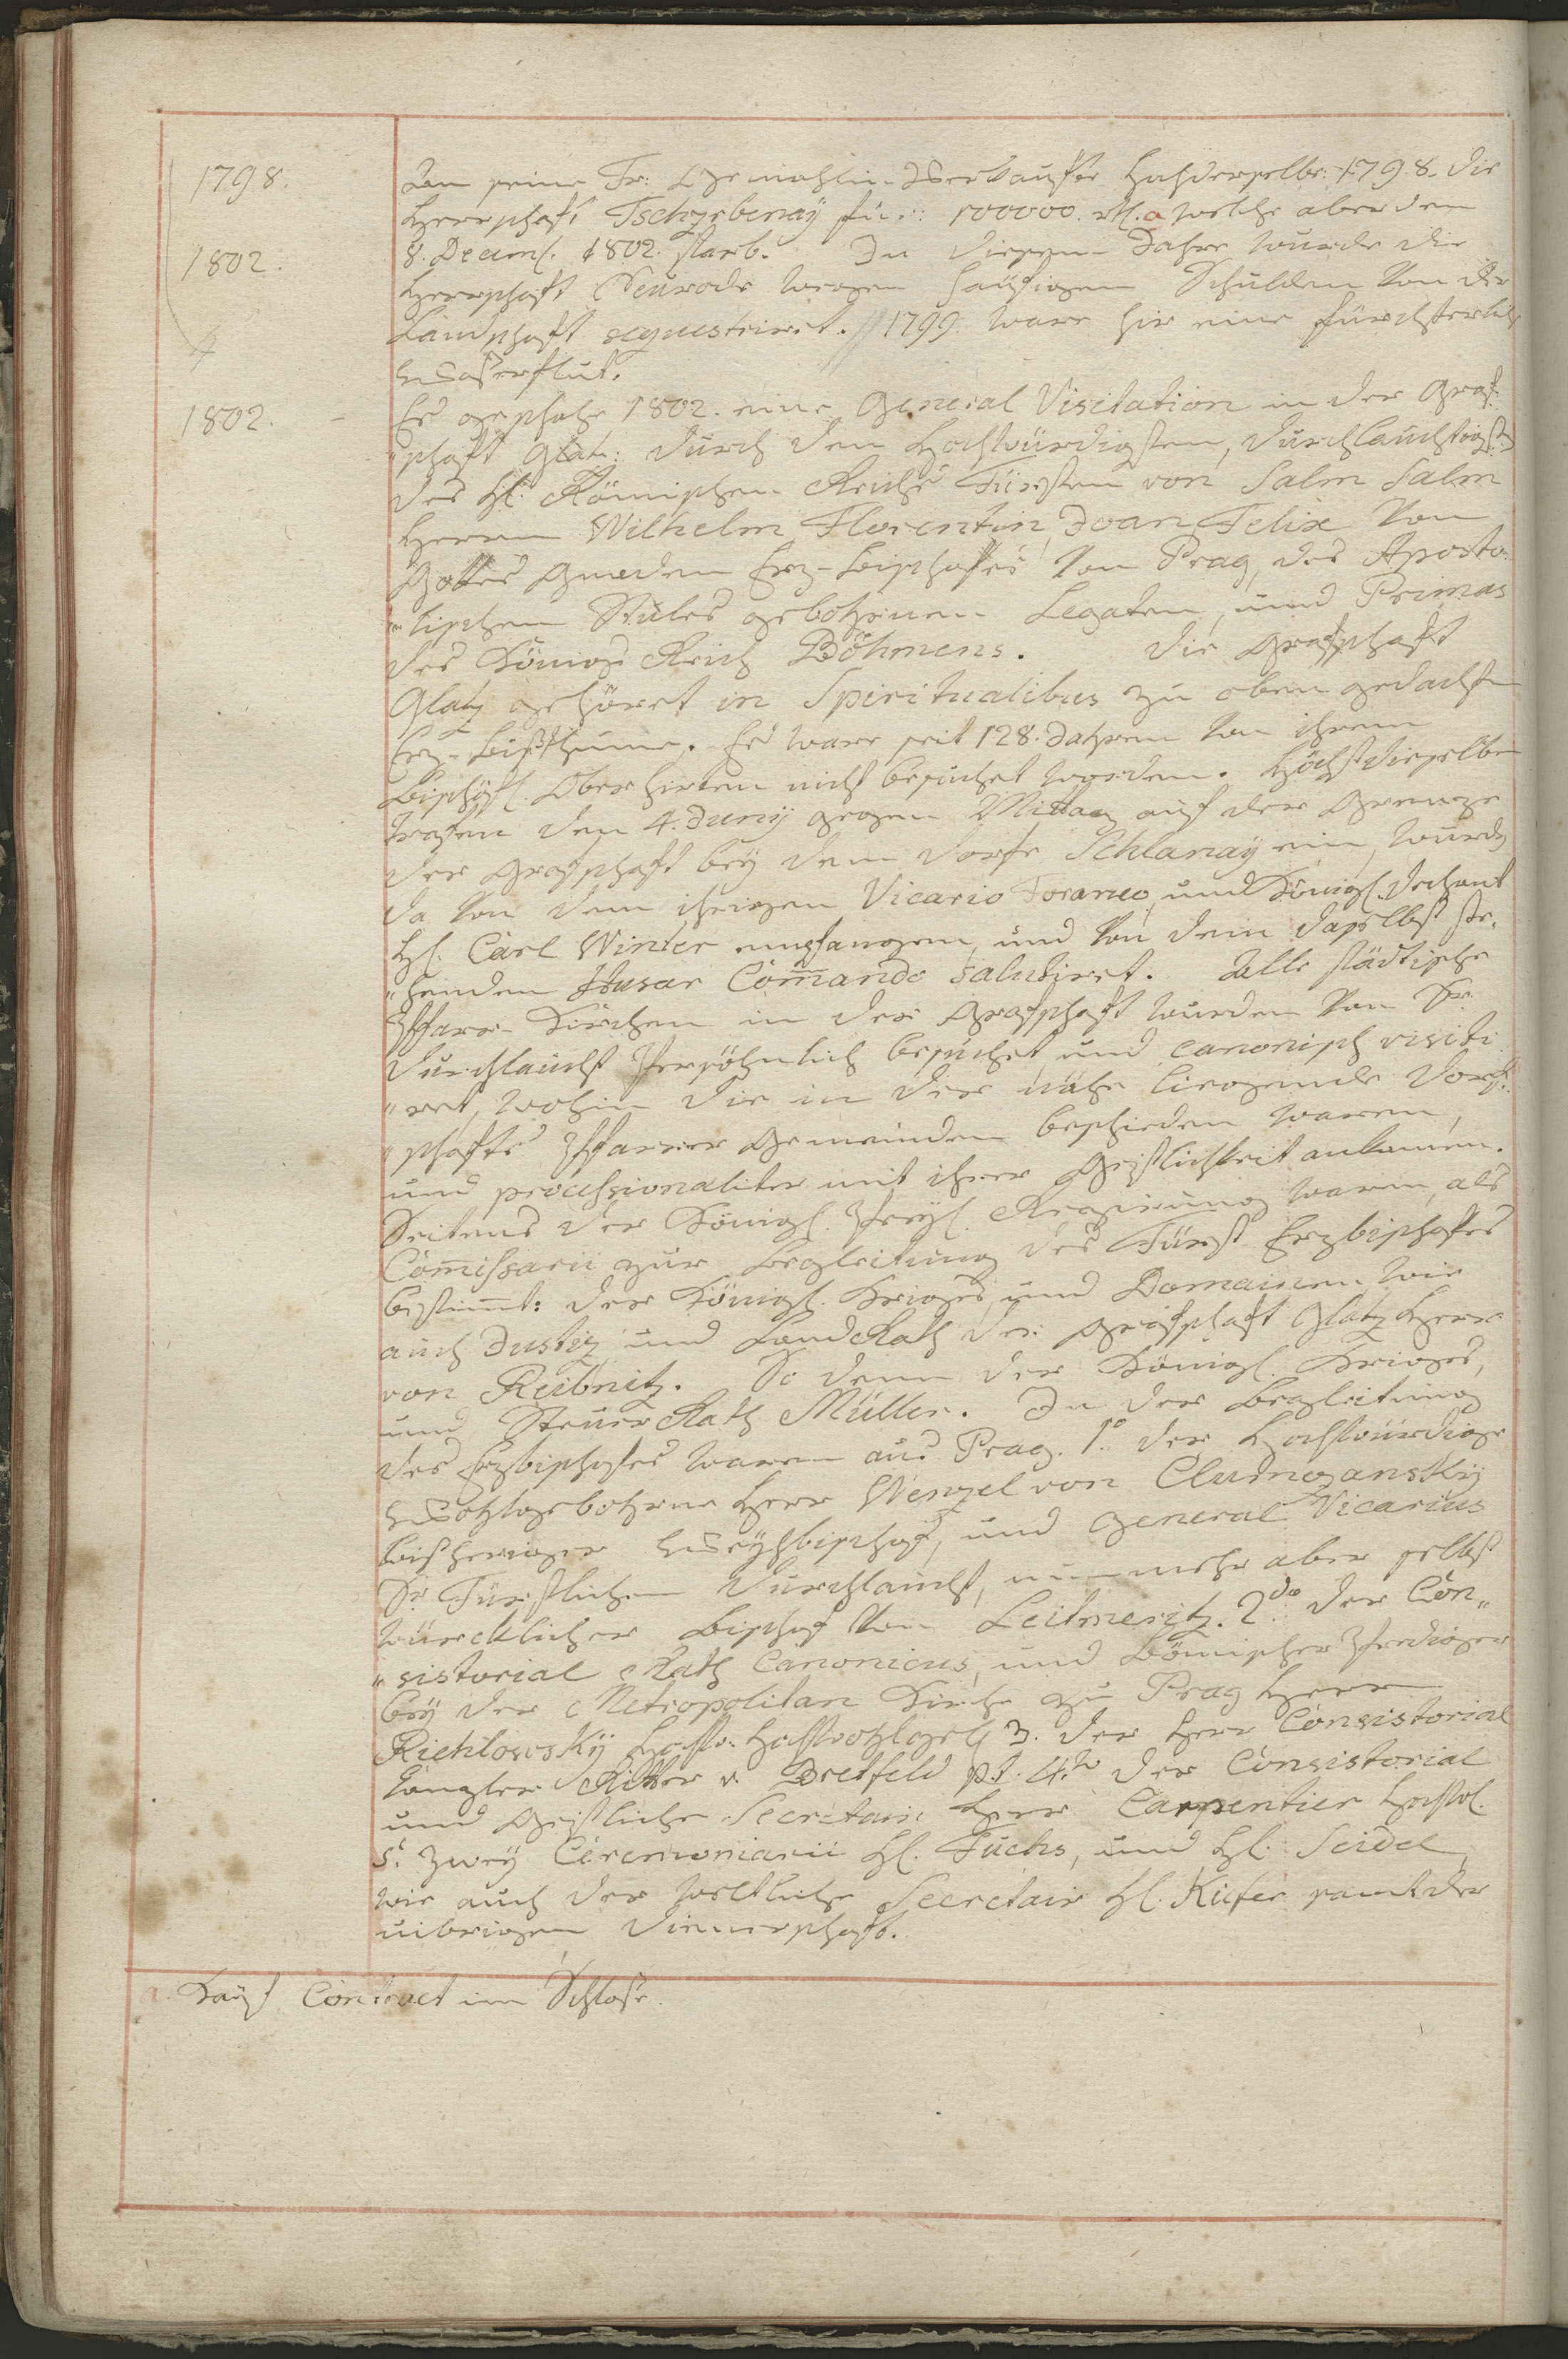 1798.
An seine Fr: Gemahlin Verkaufte Hochderselbe: 1798. die
Herrschaft Tschcherbeney für: 100000. rtl. a welche aber den
8. Decembr. 1802. starb. In diesem Jahre wurde die
1802.
Herrschaft Neurode wegen häufigen Schulden von der
Landschaft sequestriret. // 1799. ware hir eine fürchterliche
Wasserflut.
1802.
Es geschahe 1802. eine General Visitation in der Graf:
"schaft Glatz: durch den Hochwürdigsten, durchlauchtigsten
des Hl: Römischen Reichs Fürsten von Salm Salm
Herrn Wilhelm Florentin, Joan Felix von
Gottes Gnaden Erz-Bischofes von Prag, des Aposto:
"lischen Stules gebohrnen Legaten, und Primas
des König Reich Böhmens. Die Grafschaft
Glatz gehöret in Spiritualibus zu oben gedachten
Erz-Bißthume. Es ware seit 128. Jahren von ihrem
Bischöfl. Oberhirten nicht besuchet worden. Höchstdieselben
trafen den 4. Juny gegen Mittag auf der Grenze
der Grafschaft bey dem Dorfe Schlanay ein, wurden
da von dem ihrigen Vicario Foraneo, und Königl. Dechant
Hl. Carl Winter empfangen, und von dem daselbst ste,
"henden Husar Com̄ando salutiret. Alle städtische
Pfarr-Kirchen in der Grafschaft wurden von Sr.
Durchlaucht Persöhnlich besuchet und canonisch visiti
"ret, wohin die in der nähe liegende Dorf:
"schafts Pfarrer Gemeinden beschieden waren,
und processionaliter mit ihrer Geistlichkeit ankamen.
Seitens der Königl. Preyß. Regierung waren, als
Com̄issarii zur Begleitung des Fürst Erzbischofes
bestim̄t: der Königl. Kriges, und Domainen, wie
auch Justiz und Land Rath der Grafschaft Glatz Herr
von Reibnitz. So denn der Königl. Kriges,
und Steuer Rath Müller. In der Begleitung
des Erzbischofes waren aus Prag. 1° der Hochwürdige
Wohlgebohrne Herr Wenzel von
bißheriger Weyhbischof, und General Vicarius
Sr Fürstlichen Durchlaucht, nunmehr aber selbst
würcklicher Bischof von Leitmeritz. 2do der Con„
"sistorial Rath Canonicus, und Bömischer Prediger
bey der Metropolitan Kirche zu Prag Herr
Richlowsky Hochw: Hochwohlgeb. 3. der Herr Consistorial
Canzler Ritter v. Bretfeld pt. 4to der Consistorial
und Geistliche Secretair Herr Carpentier Hochw.
5. Zwey Ceremoniarii Hl. Fuchs, und Hl. Seidel,
wie auch der weltliche Secretair Hl. Kiefer samt der
uibrigen Dienerschaft.
a. Kauf Contract im Schlosse.